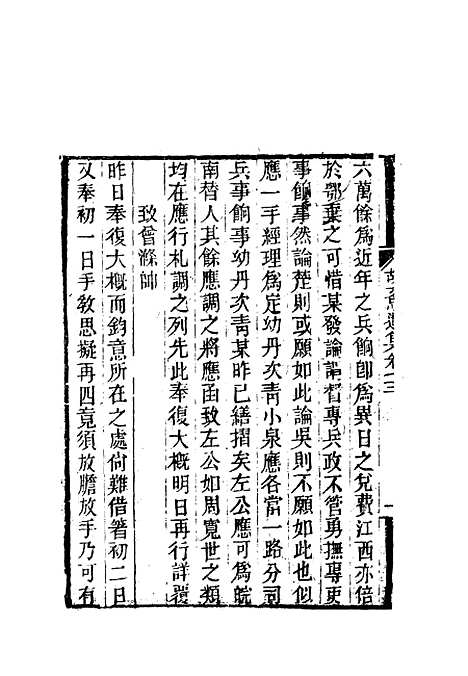 六萬餘爲近年之兵餉卽爲異日之兌費江西亦倍
於鄂棄之可惜某發論謂督專兵政不管勇撫專吏
事餉事然論楚則或願如此論吳則不願如此也似
應一手經理爲定幼丹次青小泉應各當一路分司
兵事餉事幼丹次青某昨已繕摺矣左公應可爲皖
南替人其餘應調之將應函致左公如周寬世之類
均在應行札調之列先此奉復大概明日再行詳覆
致曾滌帥
昨日奉復大概而鈞意所在之處尙難借箸初二日
又奉初一日手敎思擬再四竟須放膽放手乃可有